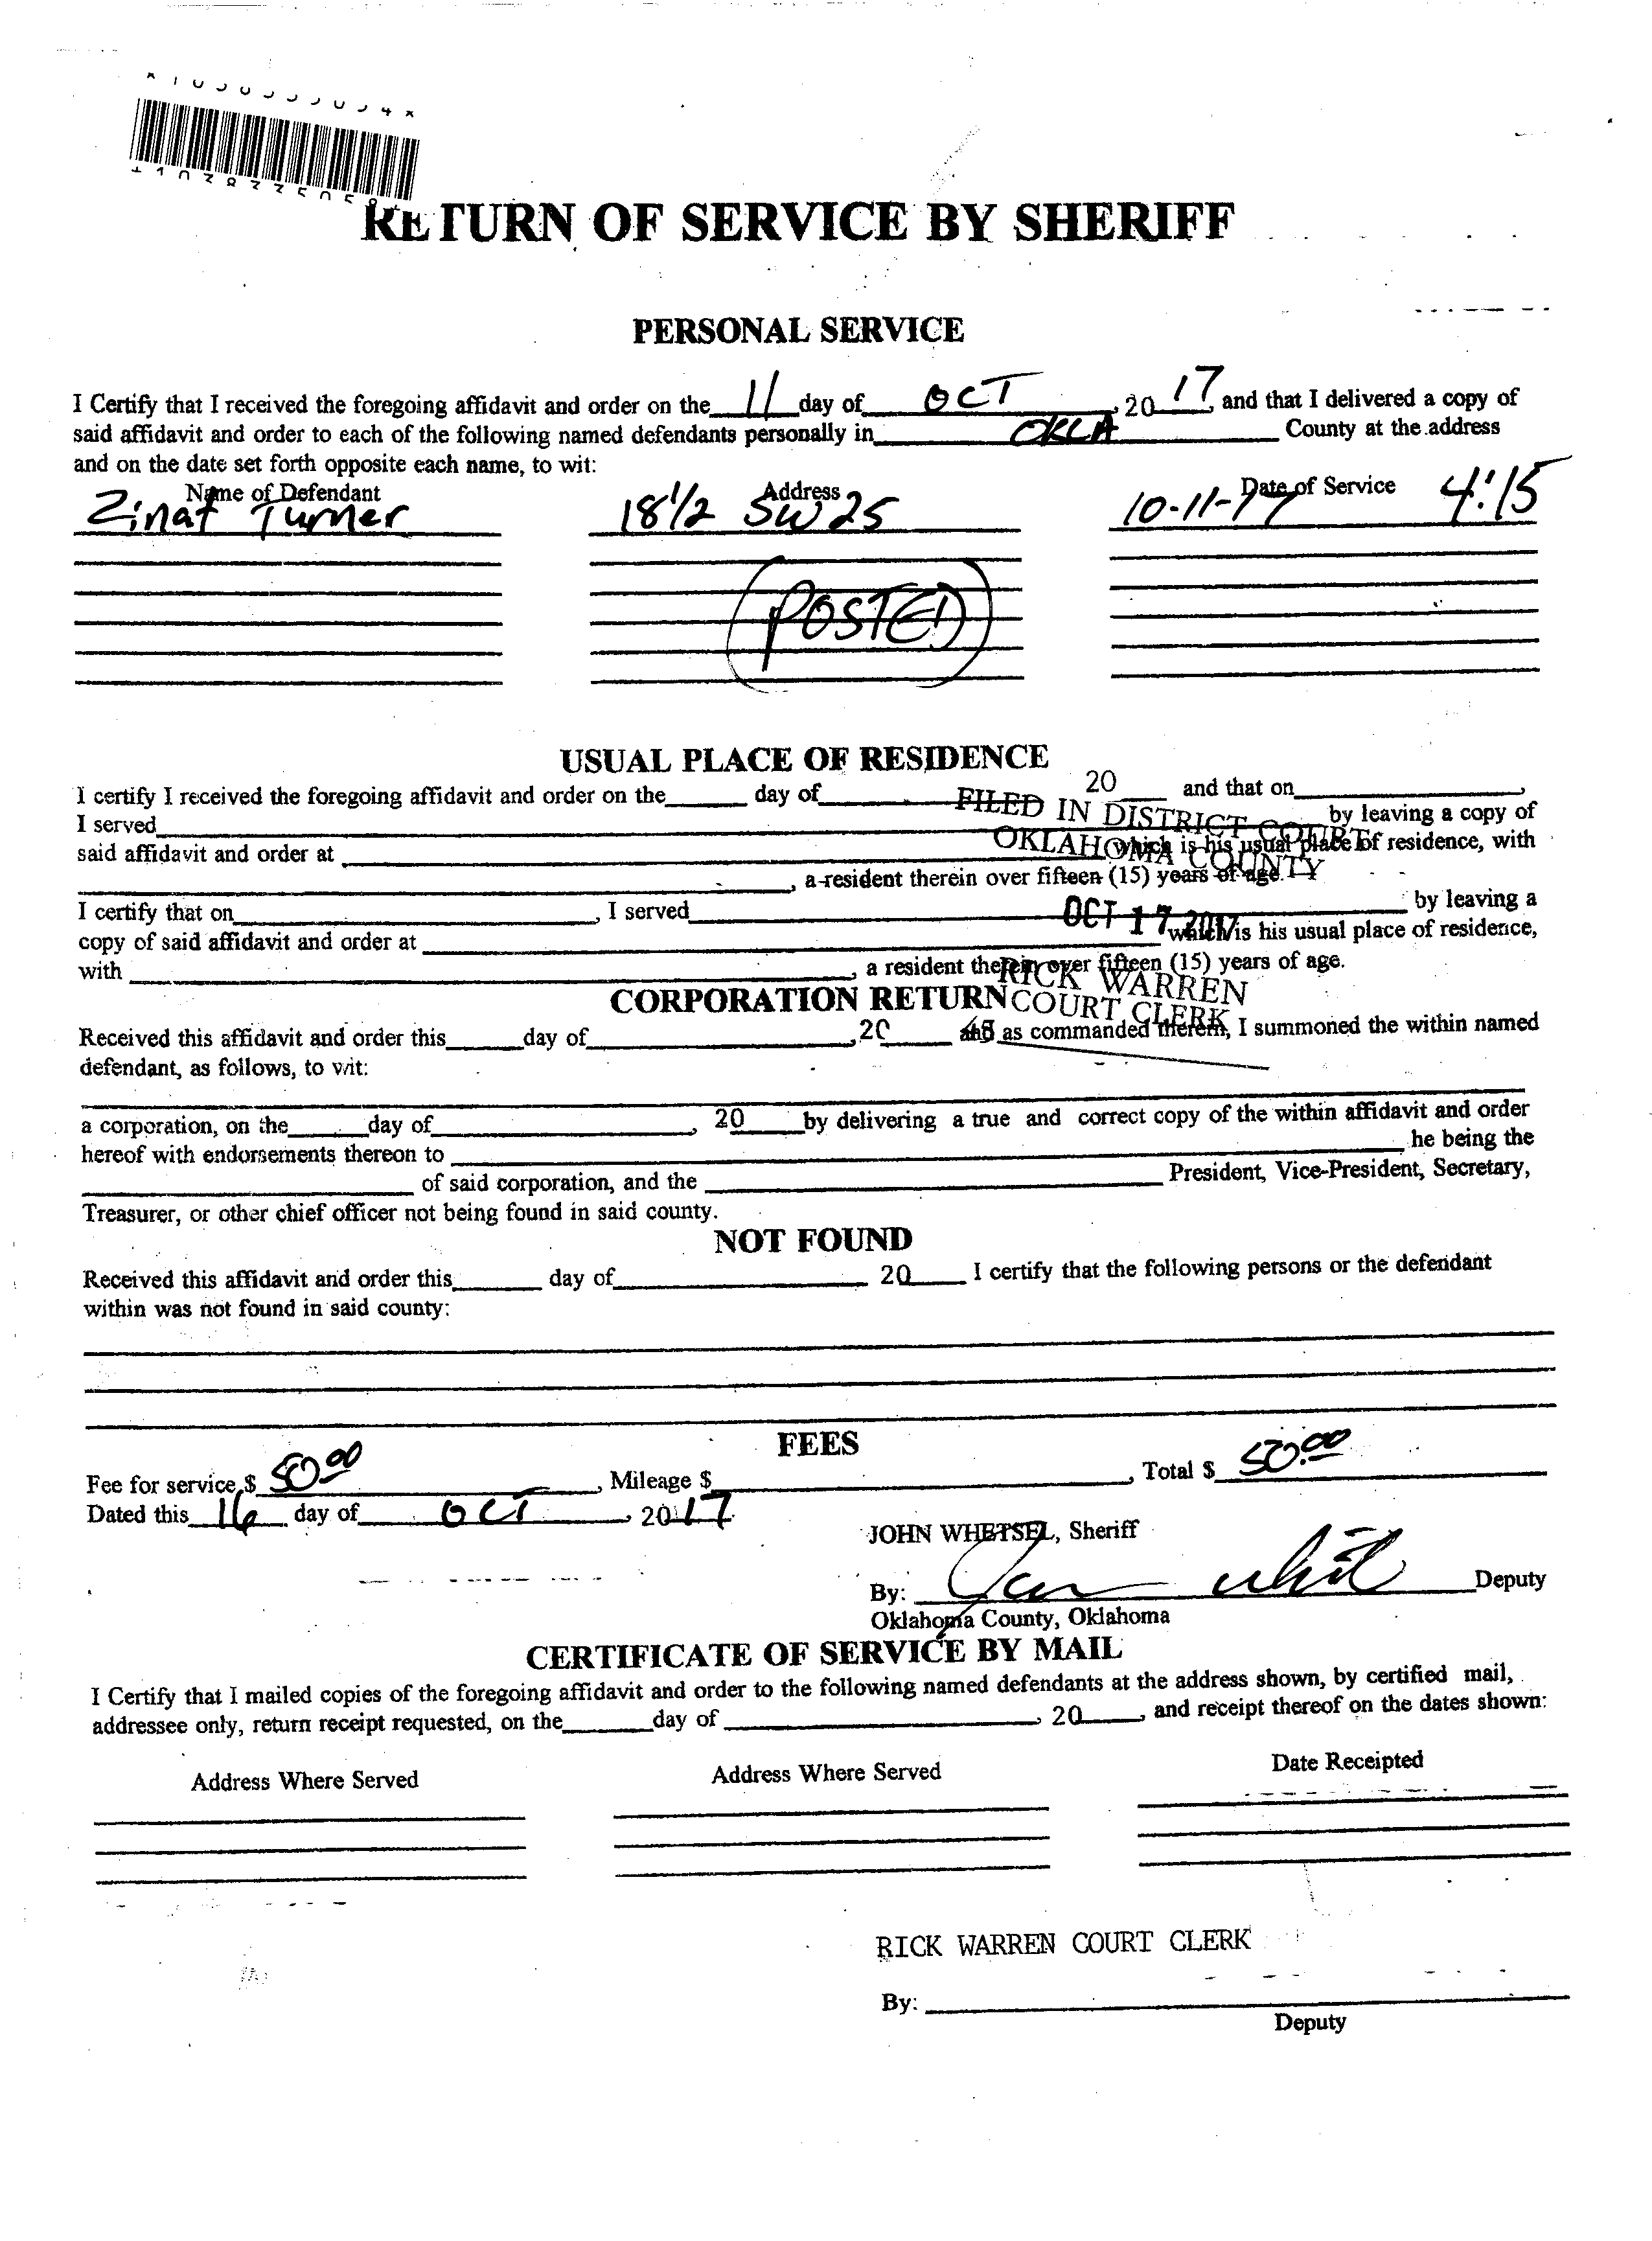 RETURN OF SERVICE BY SHERIFF
PERSONAL SERVICE
I Certify that I received the foregoing affidavit and order on the 11 day of OCT, 20 17, and that I delivered a copy of
said affidavit and order to each of the following named defendants personally in OKLA County at the address
and on the date set forth opposite each name, to wit:
Name of Defendant Address Date of Service
Zinat Turner 18 1/2 SW 25 10-11-17 4:15
POSTED
USUAL PLACE OF RESIDENCE
I certify I received the foregoing affidavit and order on the ______ day of ______ 20 ____ and that on ______,
I served ______ by leaving a copy of
said affidavit and order at ______ which is his usual place of residence, with
______, a resident therein over fifteen (15) years of age.
FILED IN DISTRICT COURT
OKLAHOMA COUNTY
I certify that on ______, I served ______ by leaving a
copy of said affidavit and order at ______ which is his usual place of residence,
with ______, a resident therein over fifteen (15) years of age.
OCT 17 2017
RICK WARREN
COURT CLERK
CORPORATION RETURN
Received this affidavit and order this ______ day of ______, 20 ____ as commanded therein, I summoned the within named
defendant, as follows, to wit:
a corporation, on the ______ day of ______, 20 ____ by delivering a true and correct copy of the within affidavit and order
hereof with endorsements thereon to ______ he being the
______ of said corporation, and the ______ President, Vice-President, Secretary,
Treasurer, or other chief officer not being found in said county.
NOT FOUND
Received this affidavit and order this ______ day of ______ 20 ____ I certify that the following persons or the defendant
within was not found in said county:
FEES
Fee for service $ 50.00, Mileage $ ______, Total $ 50.00
Dated this 16 day of OCT, 2017
JOHN WHETSEL, Sheriff
By: ______ Deputy
Oklahoma County, Oklahoma
CERTIFICATE OF SERVICE BY MAIL
I Certify that I mailed copies of the foregoing affidavit and order to the following named defendants at the address shown, by certified mail,
addressee only, return receipt requested, on the ______ day of ______, 20 ____, and receipt thereof on the dates shown:
Address Where Served Address Where Served Date Receipted
RICK WARREN COURT CLERK
By: ______
Deputy